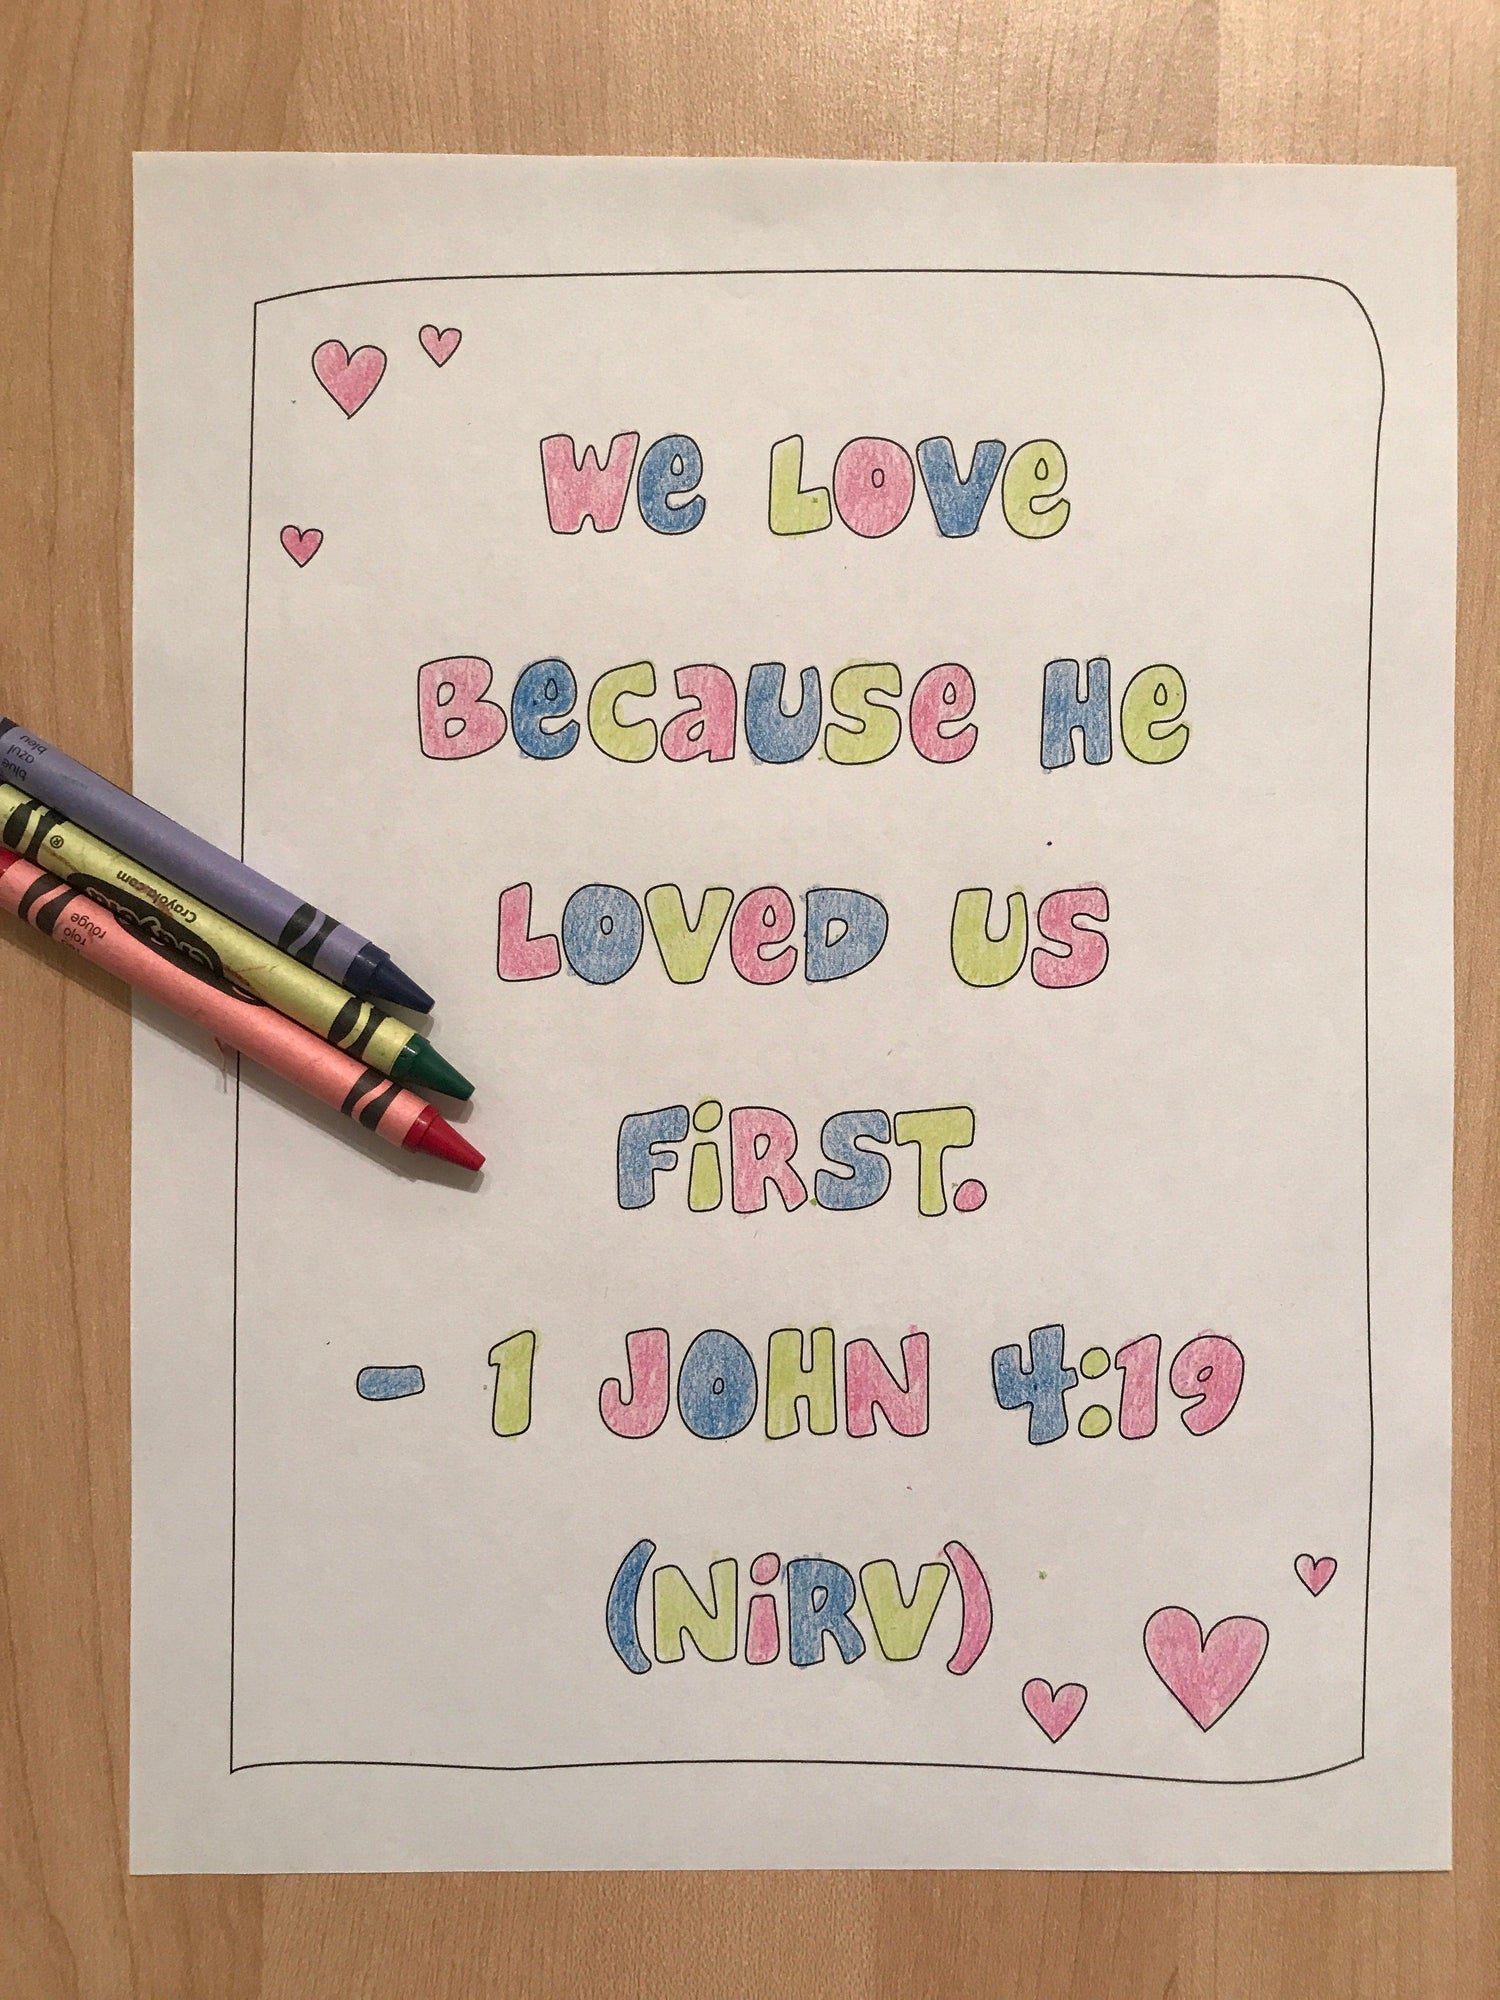 We Love
Because He
Loved us
First.
- 1 John 4:19
(NiRV)
blue
azul
bleu
Crayola.com
Crayola
rouge
rojo